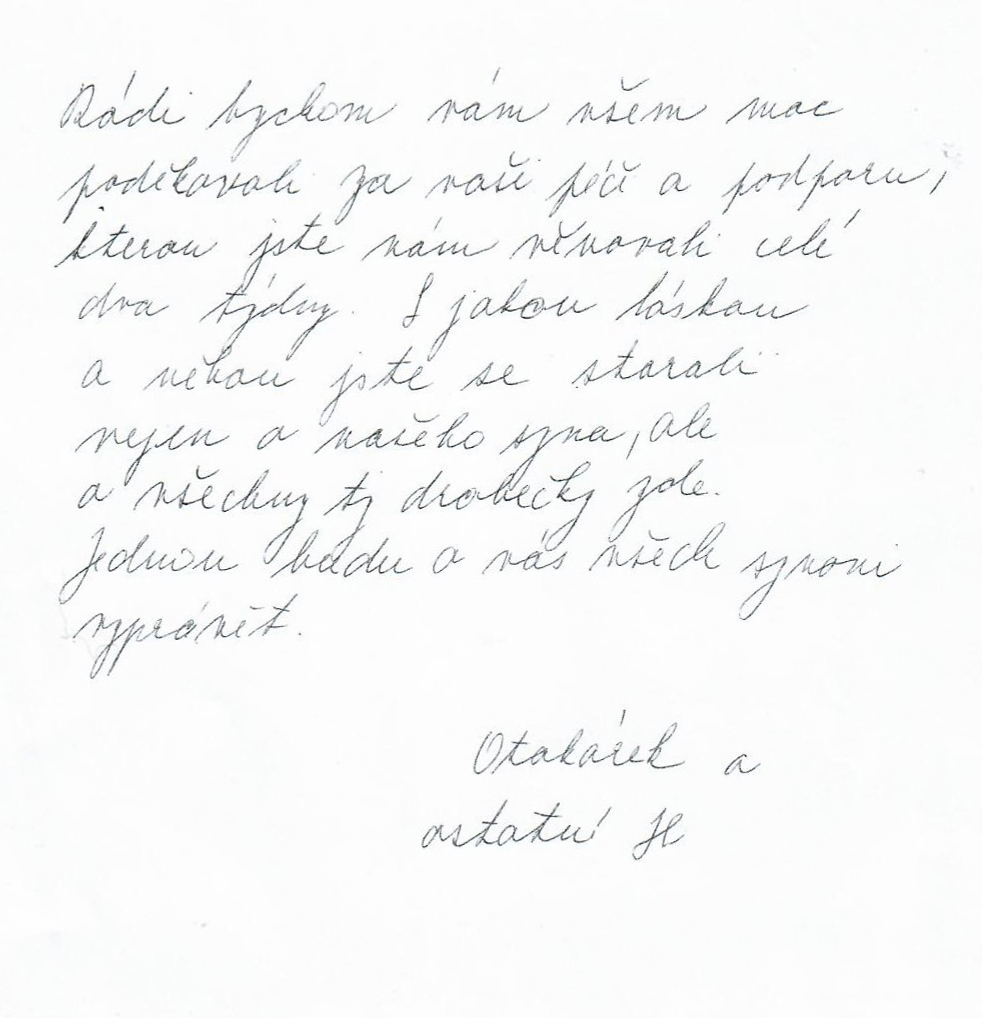 Rádi bychom vám všem moc
poděkovali za vaši péči a podporu,
kterou jste nám věnovali celé
dva týdny. S jakou láskou
a něhou jste se starali
nejen o našeho syna, ale
o všechny ty drobečky zde.
Jednou budu o vás všech synovi
vyprávět.
Otakárek a
ostatní JH